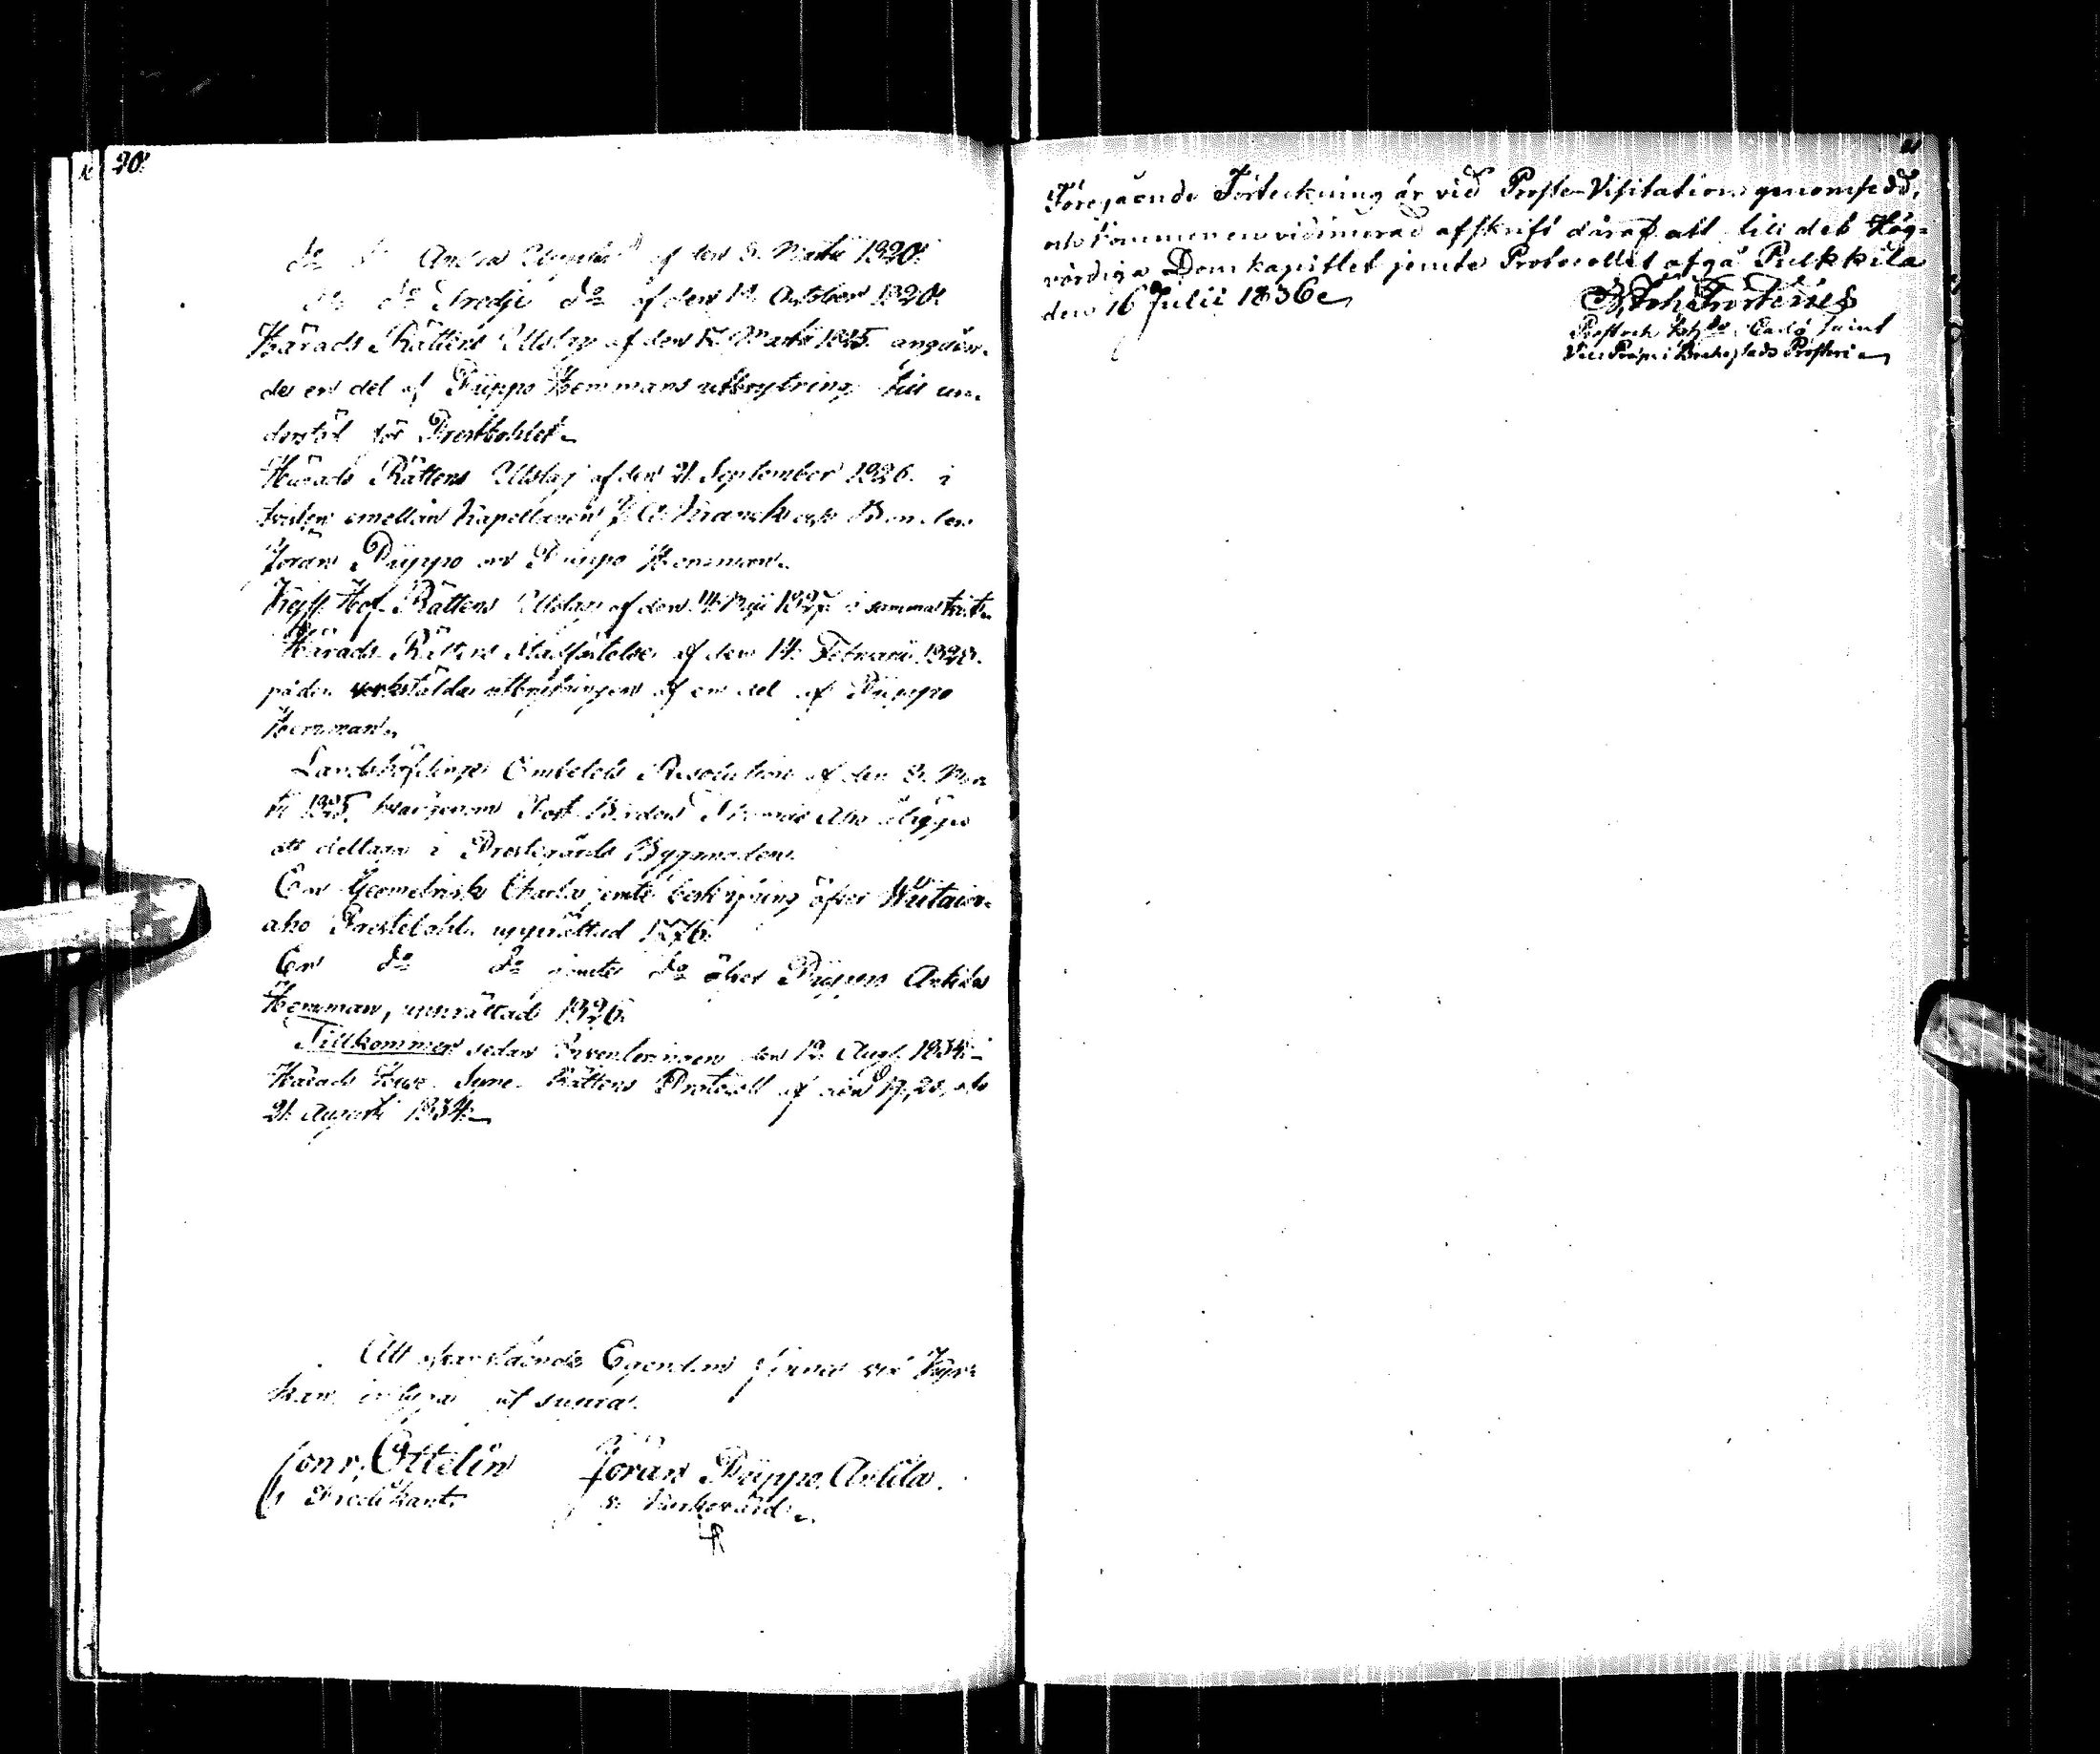 20.
do do Andra Uppbud af den 8. Martii 1820.
do do Tredje do af den 14 October 1820.
Härads Rättens Utslag af den 17. Martii 1825. angåen-
de en del af Piippo Hemmans utbrytning till un-
derstöd för Prestbohlet.
Härads Rättens Utslag af den 21. September 1826. i
tvisten emellan Kapellanen J. A. Kranck och Bonden
Jöran Piippo om Piippo Hemman.
Kejs. Hof-Rättens Utslag af den 14. Maji 1827. i samma tvist.
Härads Rättens Stadfästelse af den 14. Februarii 1828.
på den verkstälda utbrytningen af en del af Piippo
Hemman.
Landshöfdinge Embetets Resolution af den 8. Mar-
tii 1825, hvarigenom Post-Bonden Aho ålägges
att deltaga i Prestgårds Byggnaden.
En Geometrisk Charta jemte beskrifning öfver Wiitain-
aho Prestebohl, upprättad 1776.
En do do jemte do öfver Piippo Antila
Hemman, upprättad 1826.
Tillkommer sedan Inventeringen den 12. Aug. 1834.
Härads Syne-Rättens Protocoll af den 19, 20, och
21. Augusti 1834.
Allt ofvanstående Egendom finnes vid Kyr-
kan, intyga ut supra.
Conr. Ottelin Jöran Piippo Antila.
Predikant. Kyrkovärd.
21
Föregående Förteckning är vid Proste-Visitation genomsedd,
och kommer en vidimerad afskrift däraf att till det Hög-
vördiga Domkapitlet jemte Protocollet afgå. Pulkkila
den 16 Julii 1836.
Joh. Frosterus
Prost och Kyh.de i Carlö samt
Vice Præp. i Brahestads Prosteri